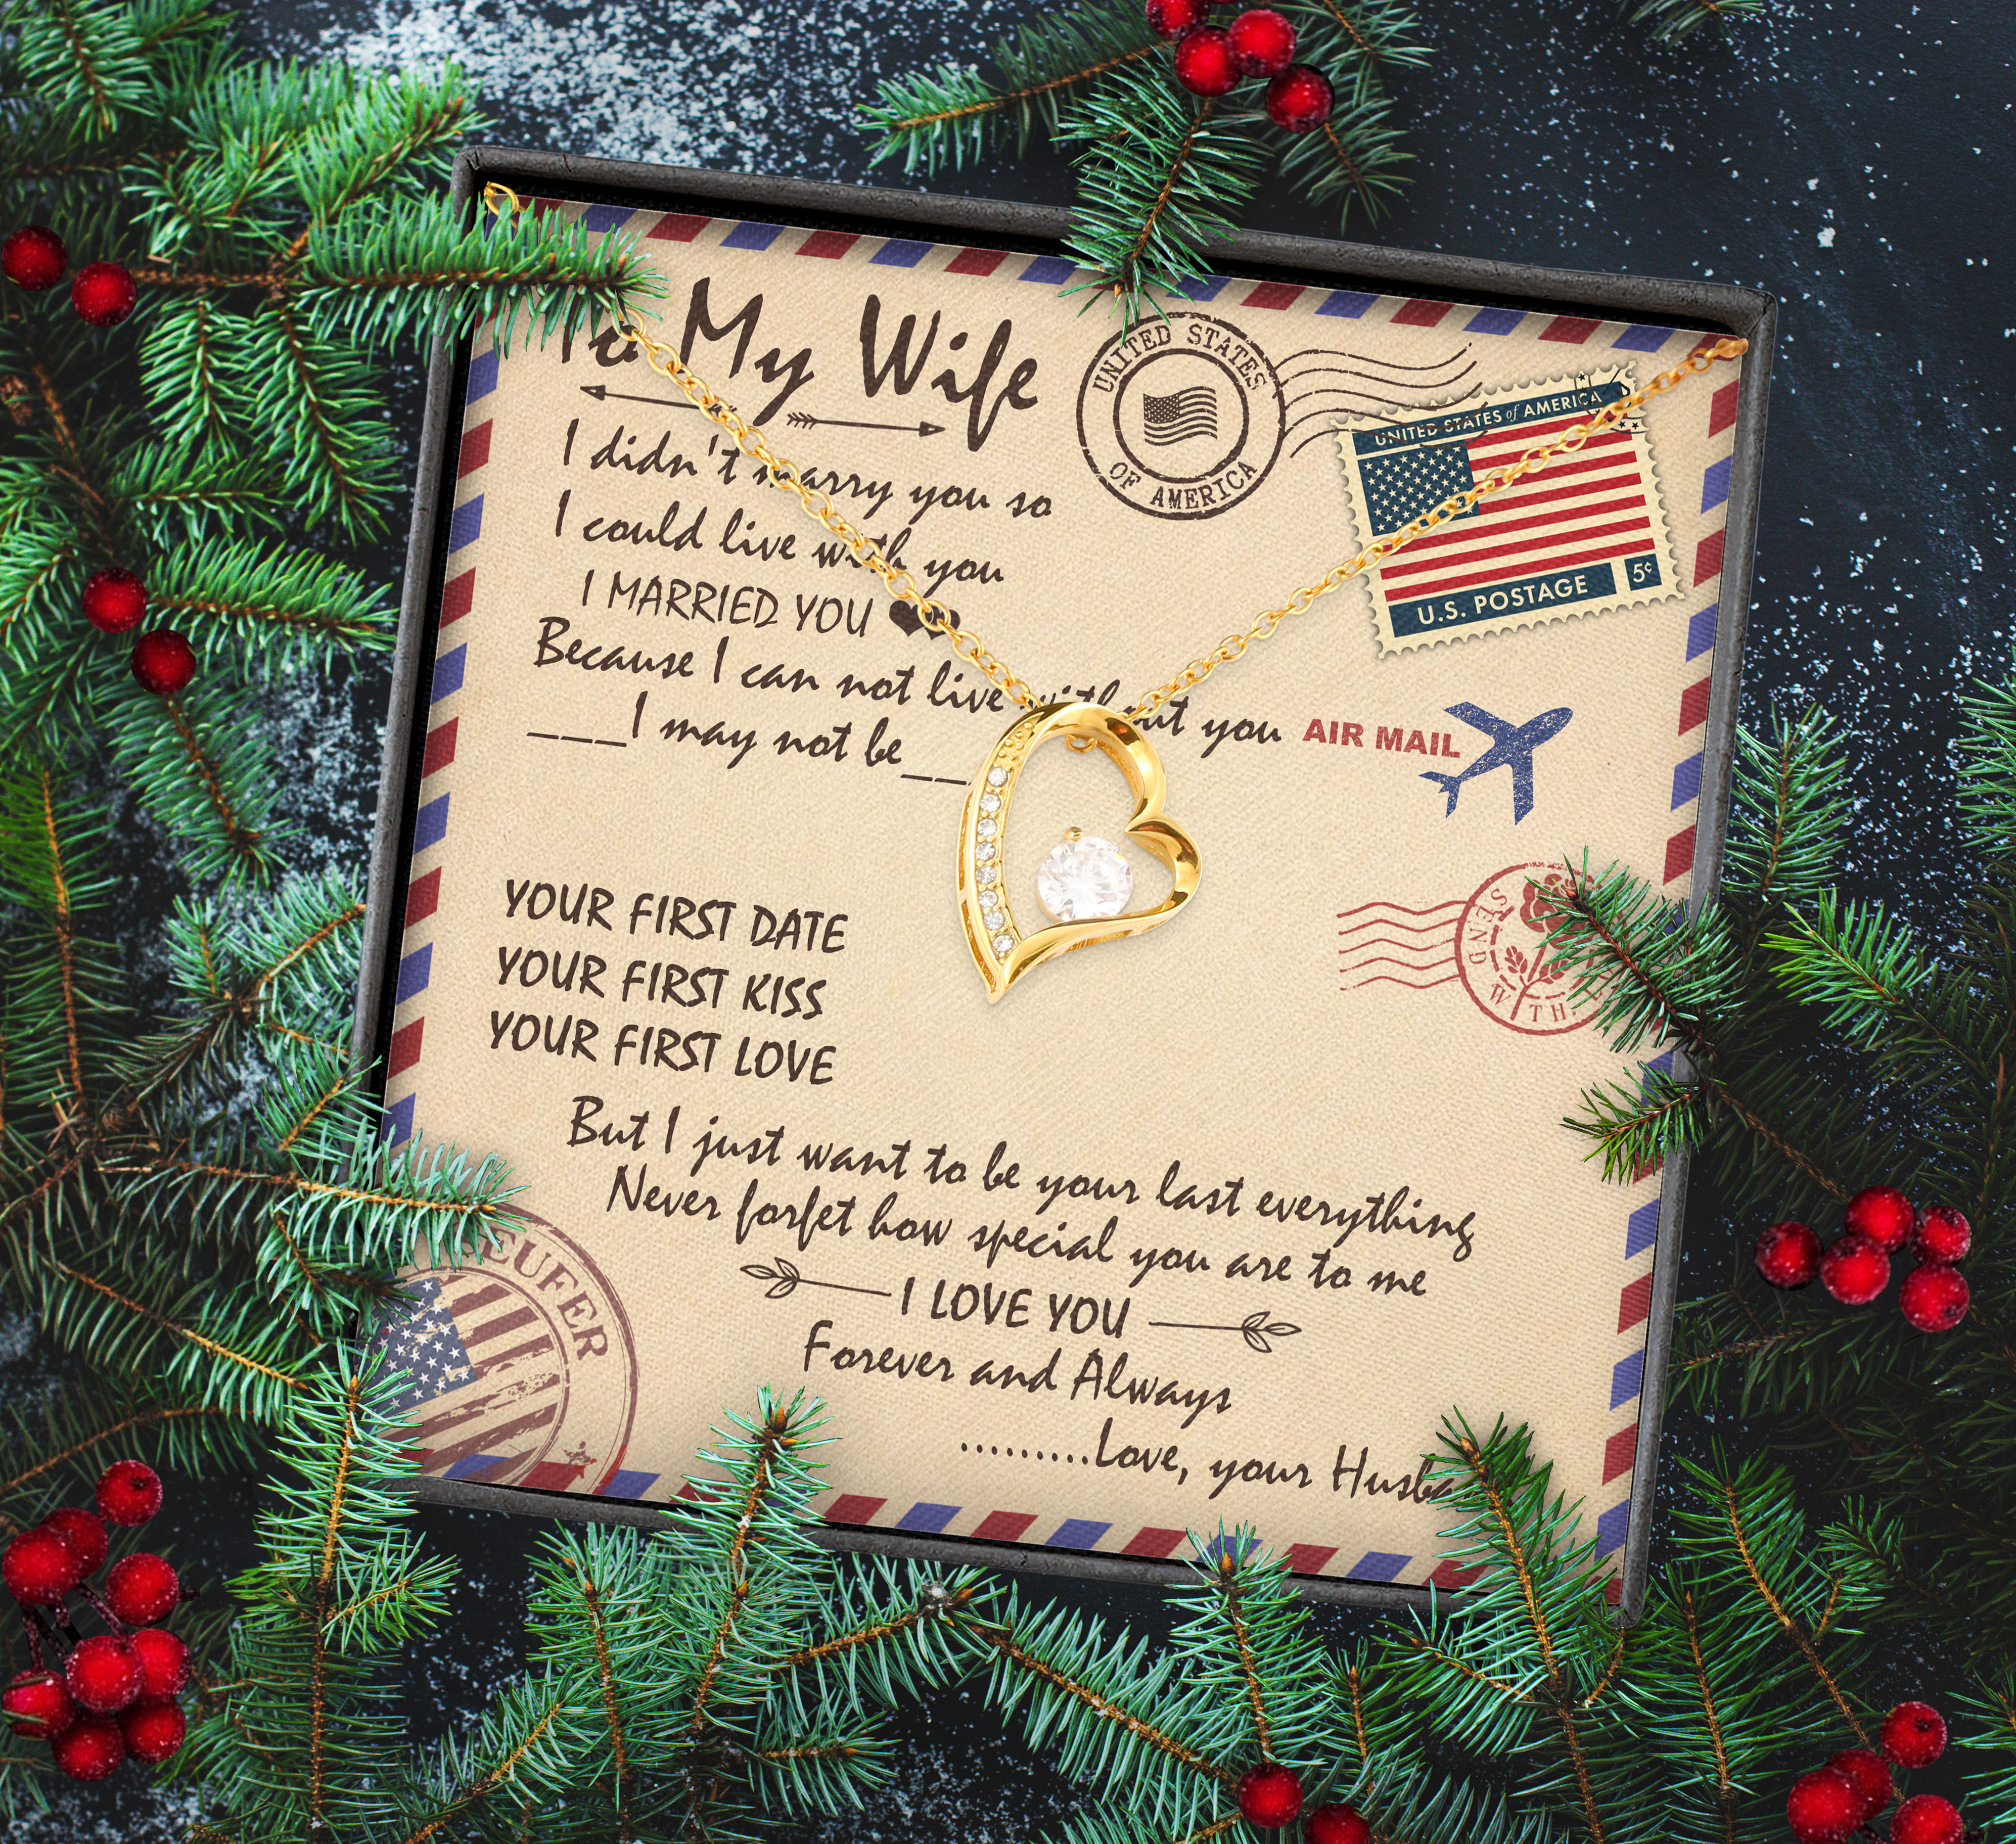 To My Wife
UNITED STATES
OF AMERICA
UNITED STATES of AMERICA
U.S. POSTAGE 5¢
I didn't marry you so
I could live with you
I MARRIED YOU
Because I can not live without you
AIR MAIL
___I may not be__
YOUR FIRST DATE
YOUR FIRST KISS
YOUR FIRST LOVE
SEND WITH
But I just want to be your last everything
Never forfet how special you are to me
I LOVE YOU
Forever and Always
.........Love, your Husba
EUFER